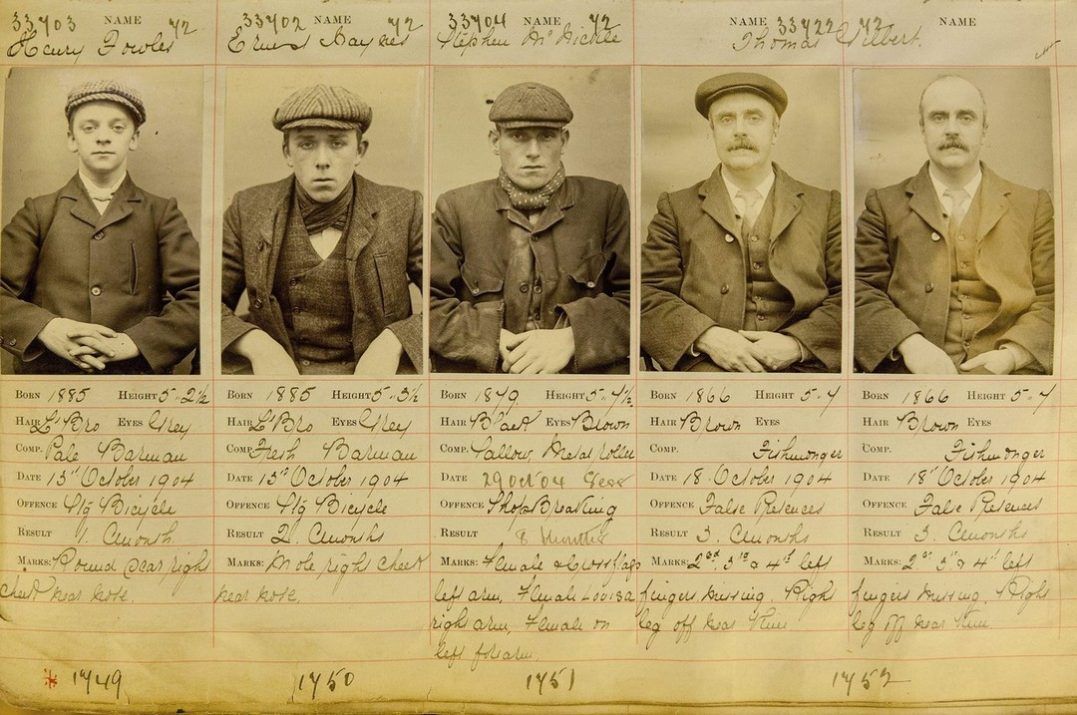 33703 NAME 72
Henry Fowles
33702 NAME 72
Ernest Haynes
33704 NAME 72
Stephen
NAME 33722 72 NAME
Thomas Gilbert.
BORN 1885 HEIGHT 5-2½
HAIR Lt Bro EYES Grey
COMP. Pale Barman
DATE 13th October 1904
OFFENCE Stg Bicycle
RESULT 1. Cmonth.
MARKS: Round scar right
cheek near nose.
BORN 1885 HEIGHT 5-3½
HAIR Lt Bro EYES Grey
COMP. Fresh Barman
DATE 13th October 1904
OFFENCE Stg Bicycle
RESULT 2. Cmonths
MARKS: Mole right cheek
near nose.
BORN 1879 HEIGHT 5-4½
HAIR Black EYES Brown
COMP. Sallow Metal roller
DATE 29 Oct 04 Sess
OFFENCE Shop Breaking
RESULT 8 months
MARKS: Female & Cross flags
left arm, Female Louisa
right arm, Female on
left forearm.
BORN 1866 HEIGHT 5-7
HAIR Brown EYES
COMP. Fishmonger
DATE 18 October 1904
OFFENCE False Pretences
RESULT 3. Cmonths
MARKS: 2nd, 3rd & 4th left
fingers missing. Right
leg off near knee
BORN 1866 HEIGHT 5-7
HAIR Brown EYES
COMP. Fishmonger
DATE 18th October 1904
OFFENCE False Pretences
RESULT 3. Cmonths
MARKS: 2nd 3rd & 4th left
fingers missing. Right
leg off near knee
* 1749 1750 1751 1752